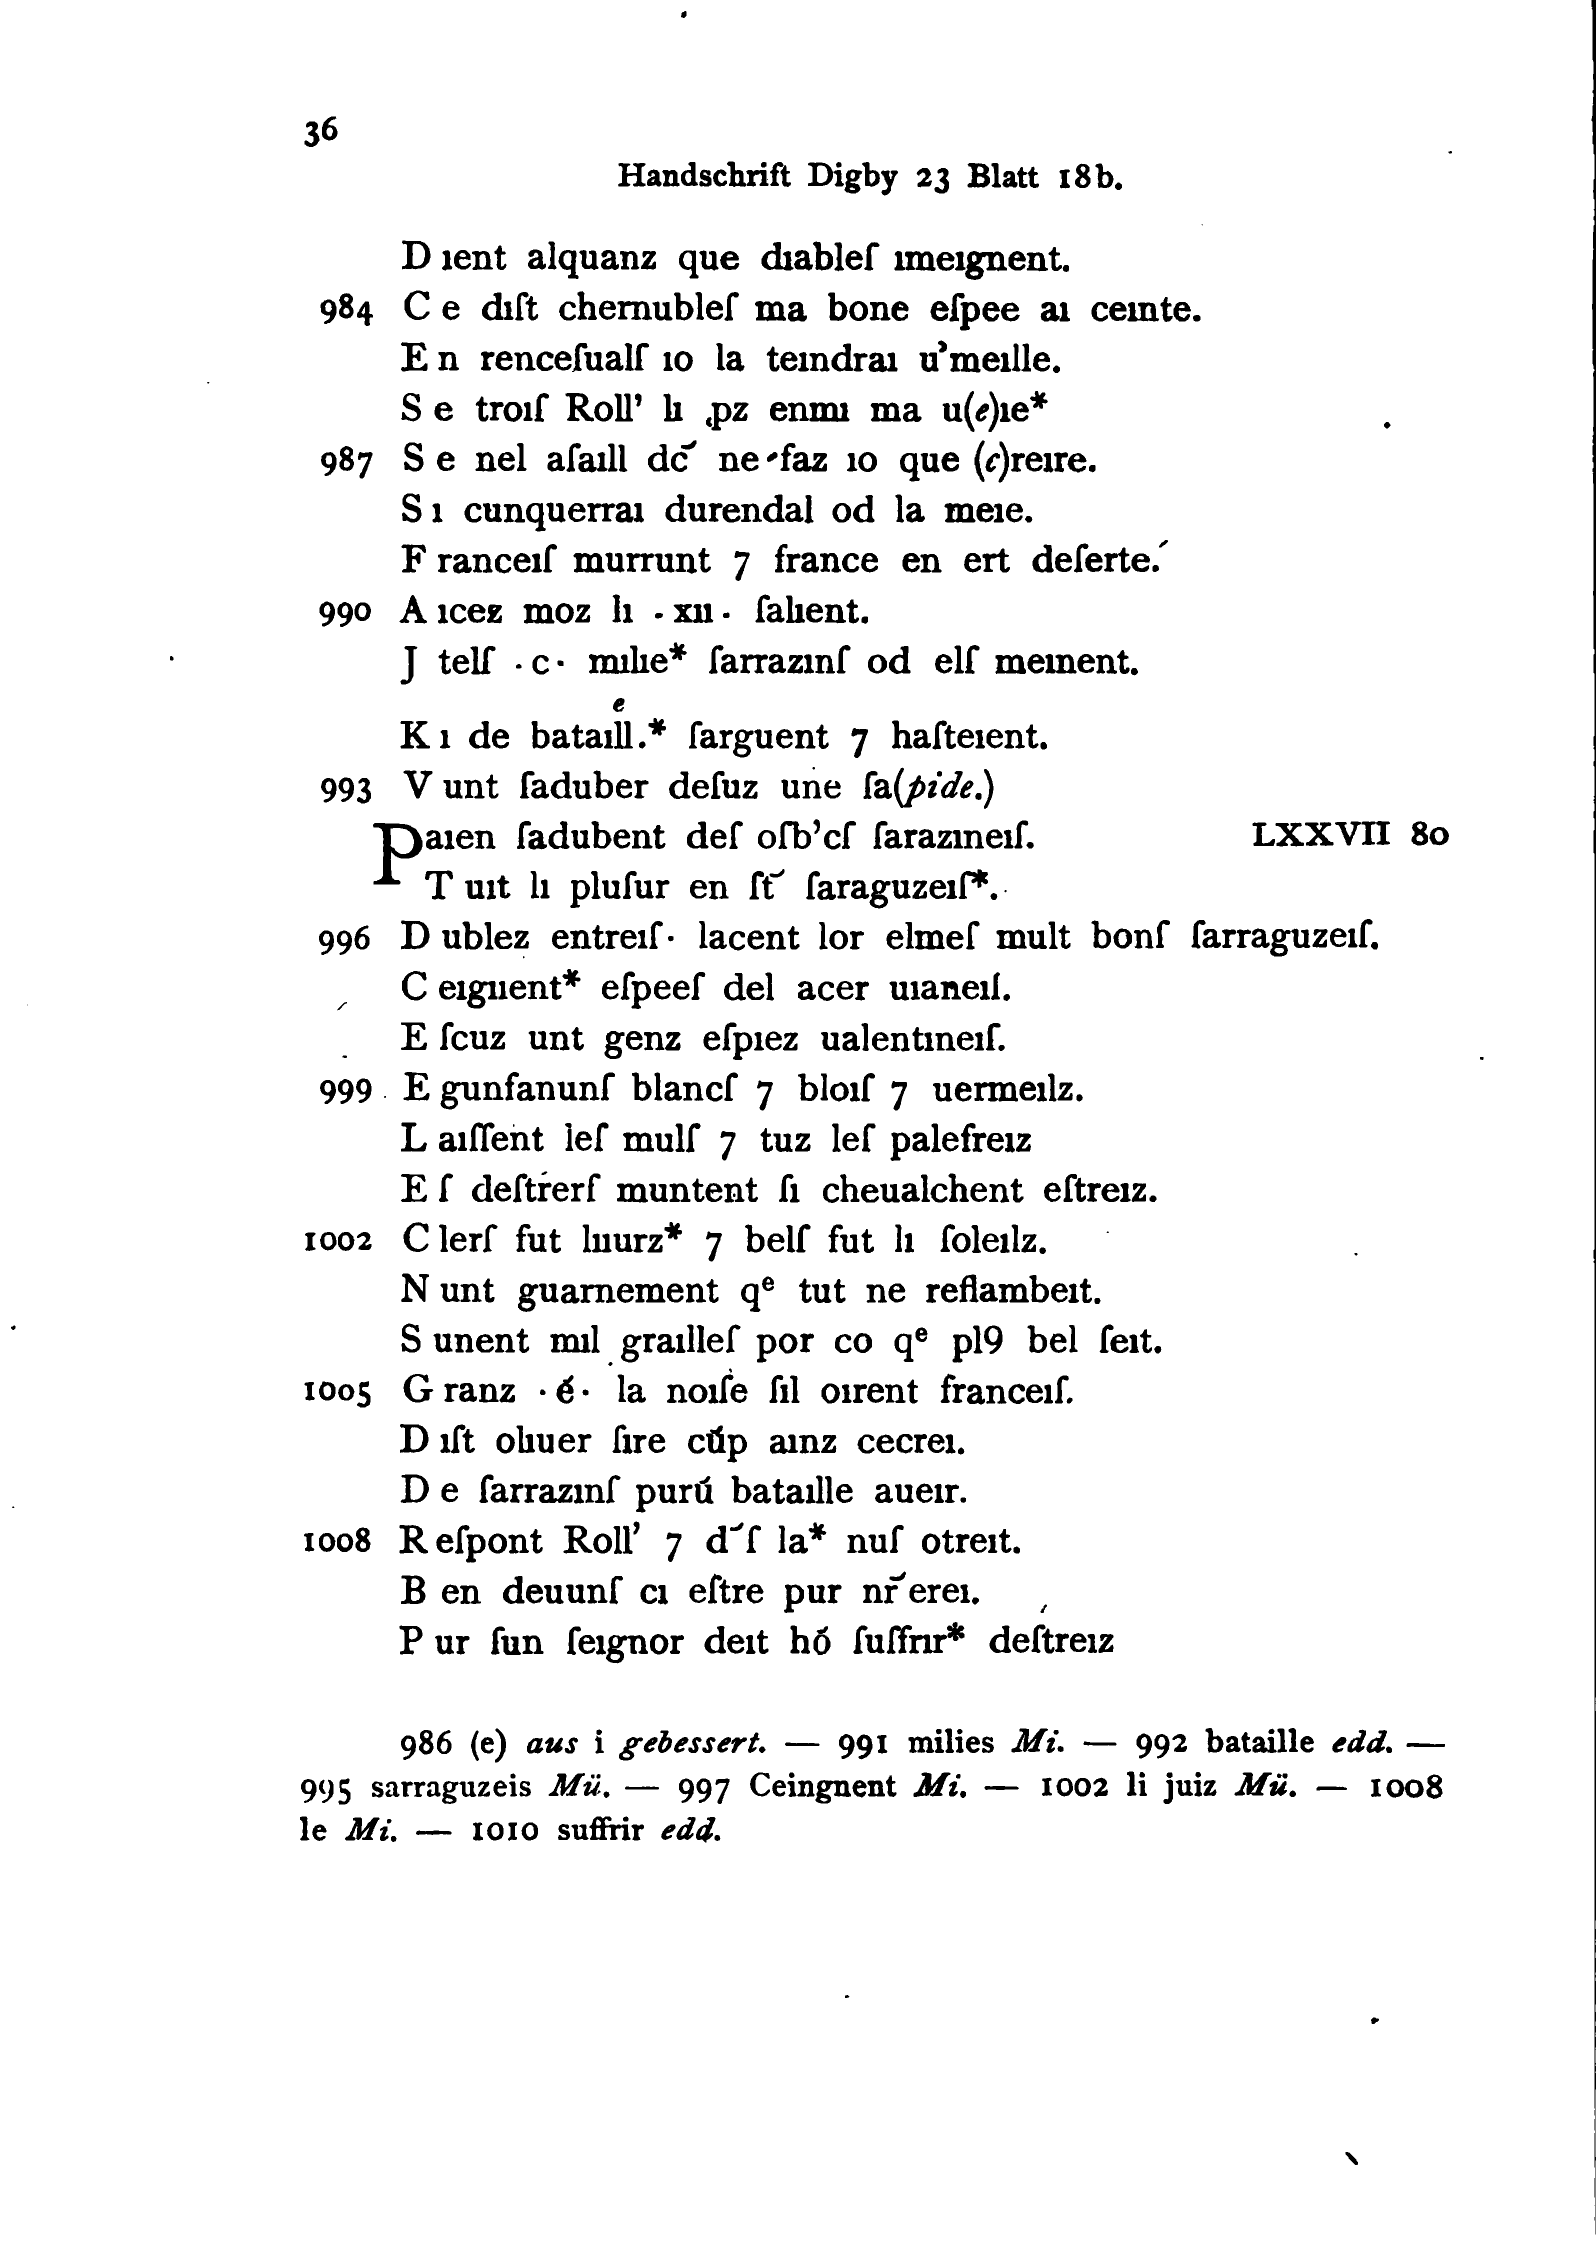 36
Handschrift Digby 23 Blatt 18b.
D ıent alquanz que dıableſ ımeıgnent.
984 C e dıſt chernubleſ ma bone eſpee aı ceınte.
E n renceſualſ ıo la teındraı u’meılle.
S e troıſ Roll’ lı ꝓz enmı ma u(e)ıe*
987 S e nel aſaıll dc̄ ne faz ıo que (c)reıre.
S ı cunquerraı durendal od la meıe.
F ranceıſ murrunt 7 france en ert deſerte.´
990 A ıcez moz lı · xıı · ſalıent.
J telſ · c · mılıe* ſarrazınſ od elſ meınent.
e
K ı de bataıll.* ſarguent 7 haſteıent.
993 V unt ſaduber deſuz une ſa(pide.)
Paıen ſadubent deſ oſb’cſ ſarazıneıſ. LXXVII 80
T uıt lı pluſur en ſt̄ ſaraguzeıſ*.
996 D ublez entreıſ· lacent lor elmeſ mult bonſ ſarraguzeıſ.
C eıgııent* eſpeeſ del acer uıaneıſ.
E ſcuz unt genz eſpıez ualentıneıſ.
999 E gunfanunſ blancſ 7 bloıſ 7 uermeılz.
L aıſſent leſ mulſ 7 tuz leſ palefreız
E ſ deſtrerſ muntent ſı cheualchent eſtreız.
1002 C lerſ fut lıuurz* 7 belſ fut lı ſoleılz.
N unt guarnement qᵉ tut ne reflambeıt.
S unent mıl graılleſ por co qᵉ pl9 bel ſeıt.
1005 G ranz · é · la noıſe ſıl oırent franceıſ.
D ıſt olıuer ſıre cū́p aınz cecreı.
D e ſarrazınſ purú bataılle aueır.
1008 R eſpont Roll’ 7 d̄ſ la* nuſ otreıt.
B en deuunſ cı eſtre pur nr̄ereı.
P ur ſun ſeıgnor deıt hó ſuſſrır* deſtreız
986 (e) aus i gebessert. — 991 milies Mi. — 992 bataille edd. —
995 sarraguzeis Mü. — 997 Ceingnent Mi. — 1002 li juiz Mü. — 1008
le Mi. — 1010 suffrir edd.